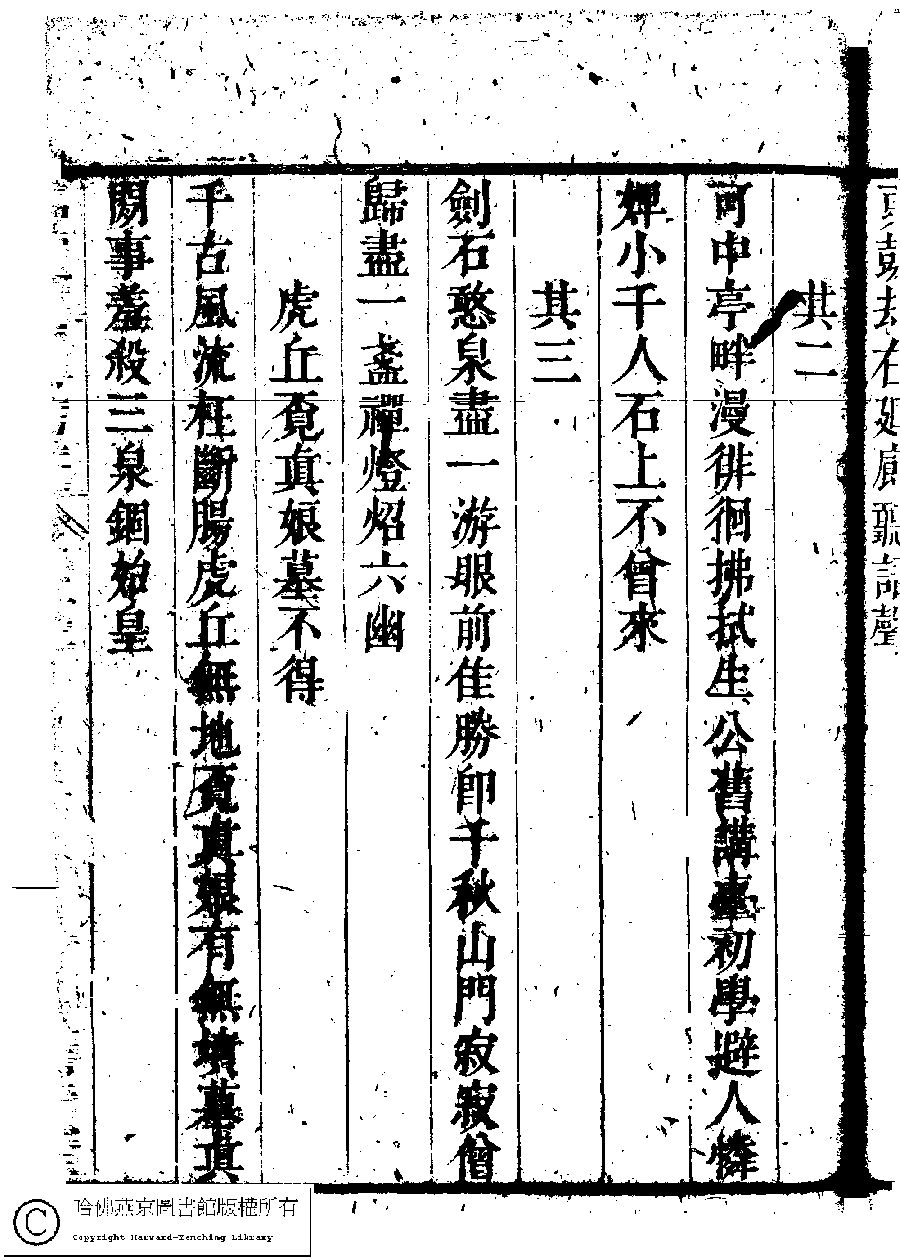 其二
可中亭畔漫徘徊拂拭生公舊講臺初學避人憐
嬋小千人石上不曾來
其三
劍石憨泉盡一游眼前佳勝即千秋山門寂寂僧
歸盡一盞禪燈炤六幽
虎丘覔真娘墓不得
千古風流枉斷腸虎丘無地覔真娘有無墳墓真
閑事羞殺三泉錮始皇
哈佛燕京圖書館版權所有
Copyright Harvard-Yenching Library